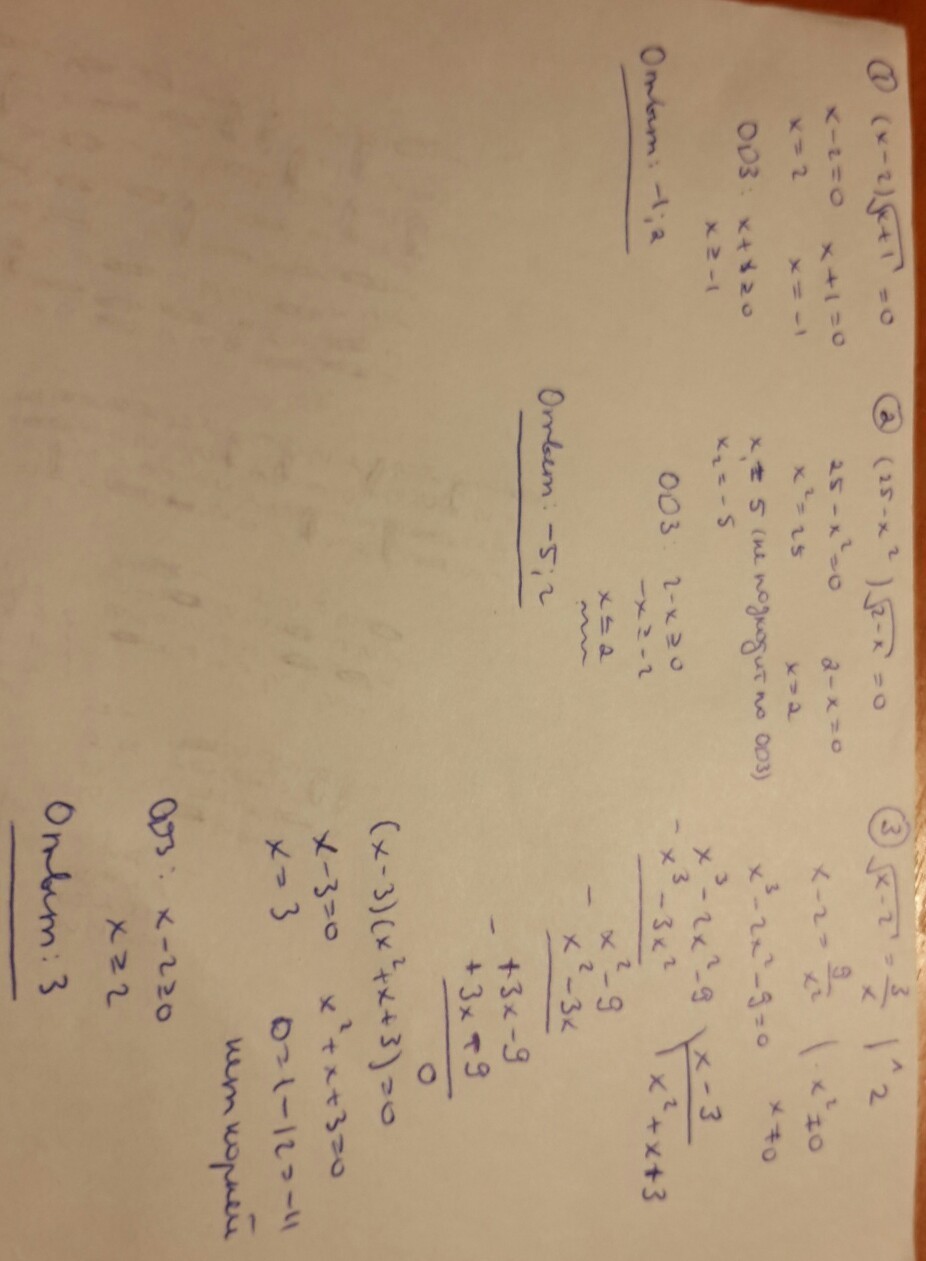 ① (x-2)√x+1 = 0
x-2=0 x+1=0
x=2 x=-1
ОДЗ: x+1≥0
x≥-1
Ответ: -1; 2
② (25-x²)√2-x = 0
25-x²=0 2-x=0
x²=25 x=2
x₁=5 (не подходит по ОДЗ)
x₂=-5
ОДЗ: 2-x≥0
-x≥-2
x≤2
Ответ: -5; 2
③ √x-2 = 3/x |^2
x-2 = 9/x² | ·x²≠0
x³-2x²-9=0 x≠0
x³-2x²-9 | x-3
- x³-3x² | x²+x+3
x²-9
- x²-3x
+3x-9
- +3x-9
0
(x-3)(x²+x+3)=0
x-3=0 x²+x+3=0
x=3 D=1-12=-11
нет корней
ОДЗ: x-2≥0
x≥2
Ответ: 3